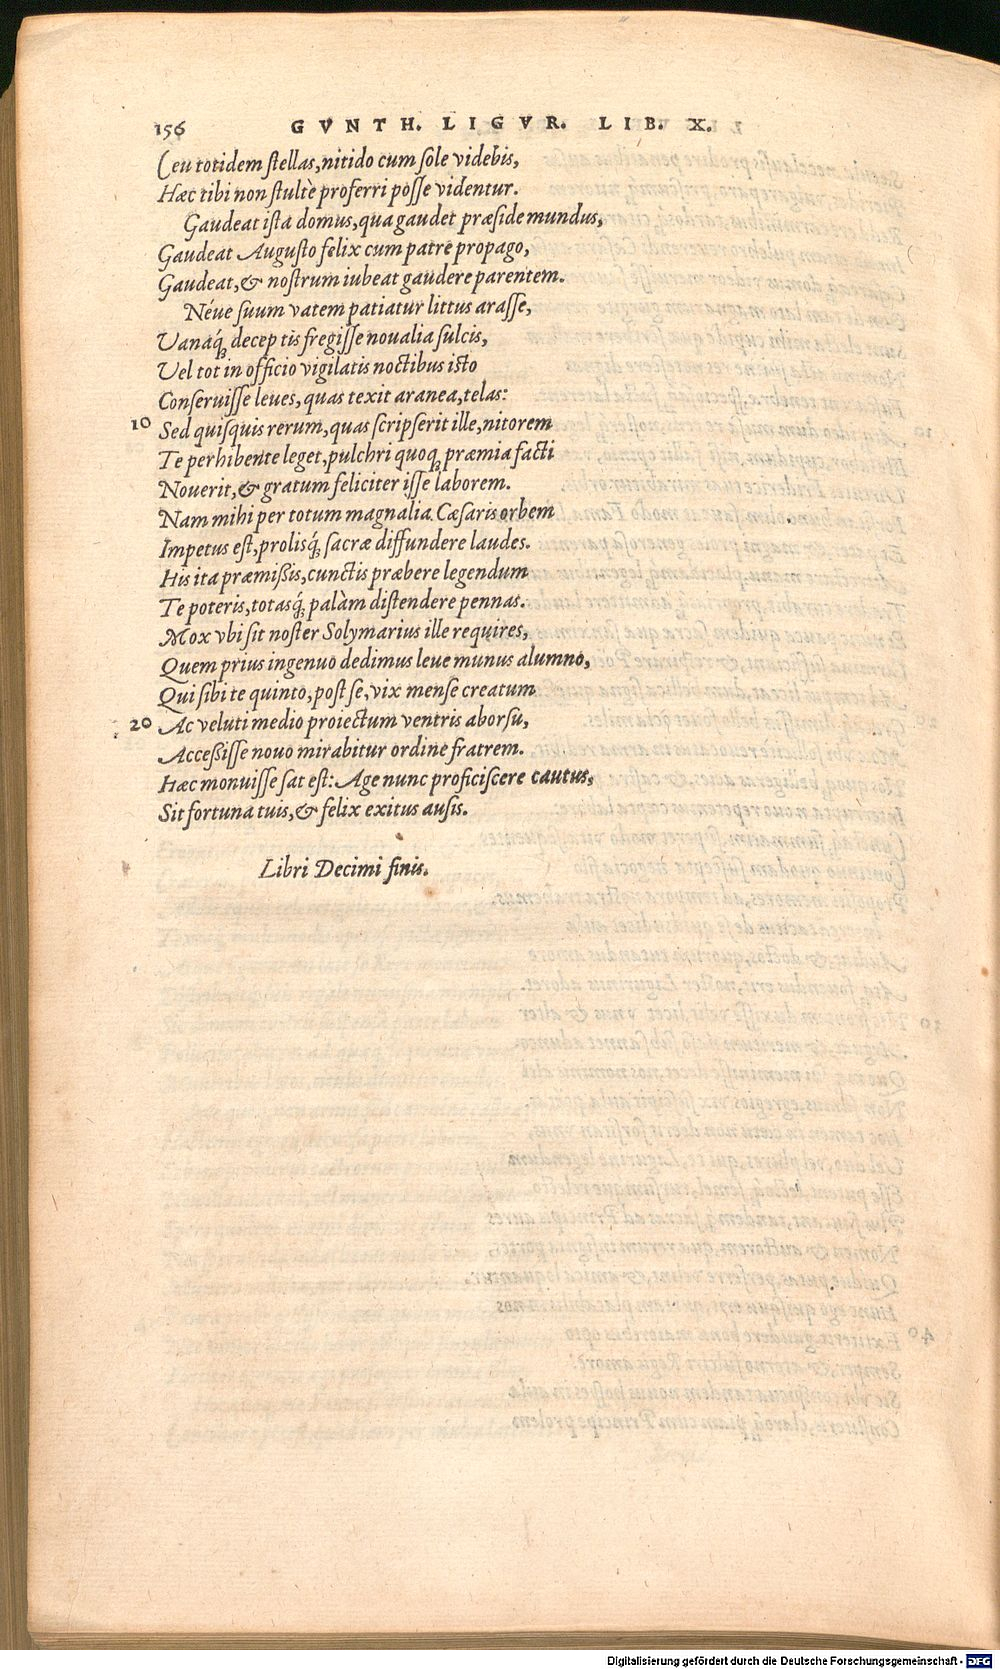 156 GVNTH. LIGVR. LIB. X.
Ceu totidem ſtellas, nitido cum ſole videbis,
Hæc tibi non ſtultè proferri poſſe videntur.
Gaudeat iſta domus, qua gaudet præſide mundus,
Gaudeat Auguſto felix cum patre propago,
Gaudeat, & noſtrum iubeat gaudere parentem.
Néue ſuum vatem patiatur littus araſſe,
Vanáq́; deceptis fregiſſe noualia ſulcis,
Vel tot in officio vigilatis noctibus iſto
Conſeruiſſe leues, quas texit aranea, telas:
10 Sed quiſquis rerum, quas ſcripſerit ille, nitorem
Te perhibente leget, pulchri quoq; præmia facti
Nouerit, & gratum feliciter iſſe laborem.
Nam mihi per totum magnalia Cæſaris orbem
Impetus eſt, prolisq́; ſacræ diffundere laudes.
His ita præmißis, cunctis præbere legendum
Te poteris, totasq́; palàm diſtendere pennas.
Mox vbi ſit noſter Solymarius ille requires,
Quem prius ingenuo dedimus leue munus alumno,
Qui ſibi te quinto, poſt ſe, vix menſe creatum
20 Ac veluti medio proiectum ventris aborſu,
Acceßiſſe nouo mirabitur ordine fratrem.
Hæc monuiſſe ſat eſt: Age nunc proficiſcere cautus,
Sit fortuna tuis, & felix exitus auſis.
Libri Decimi finis.
Digitalisierung gefördert durch die Deutsche Forschungsgemeinschaft - DFG